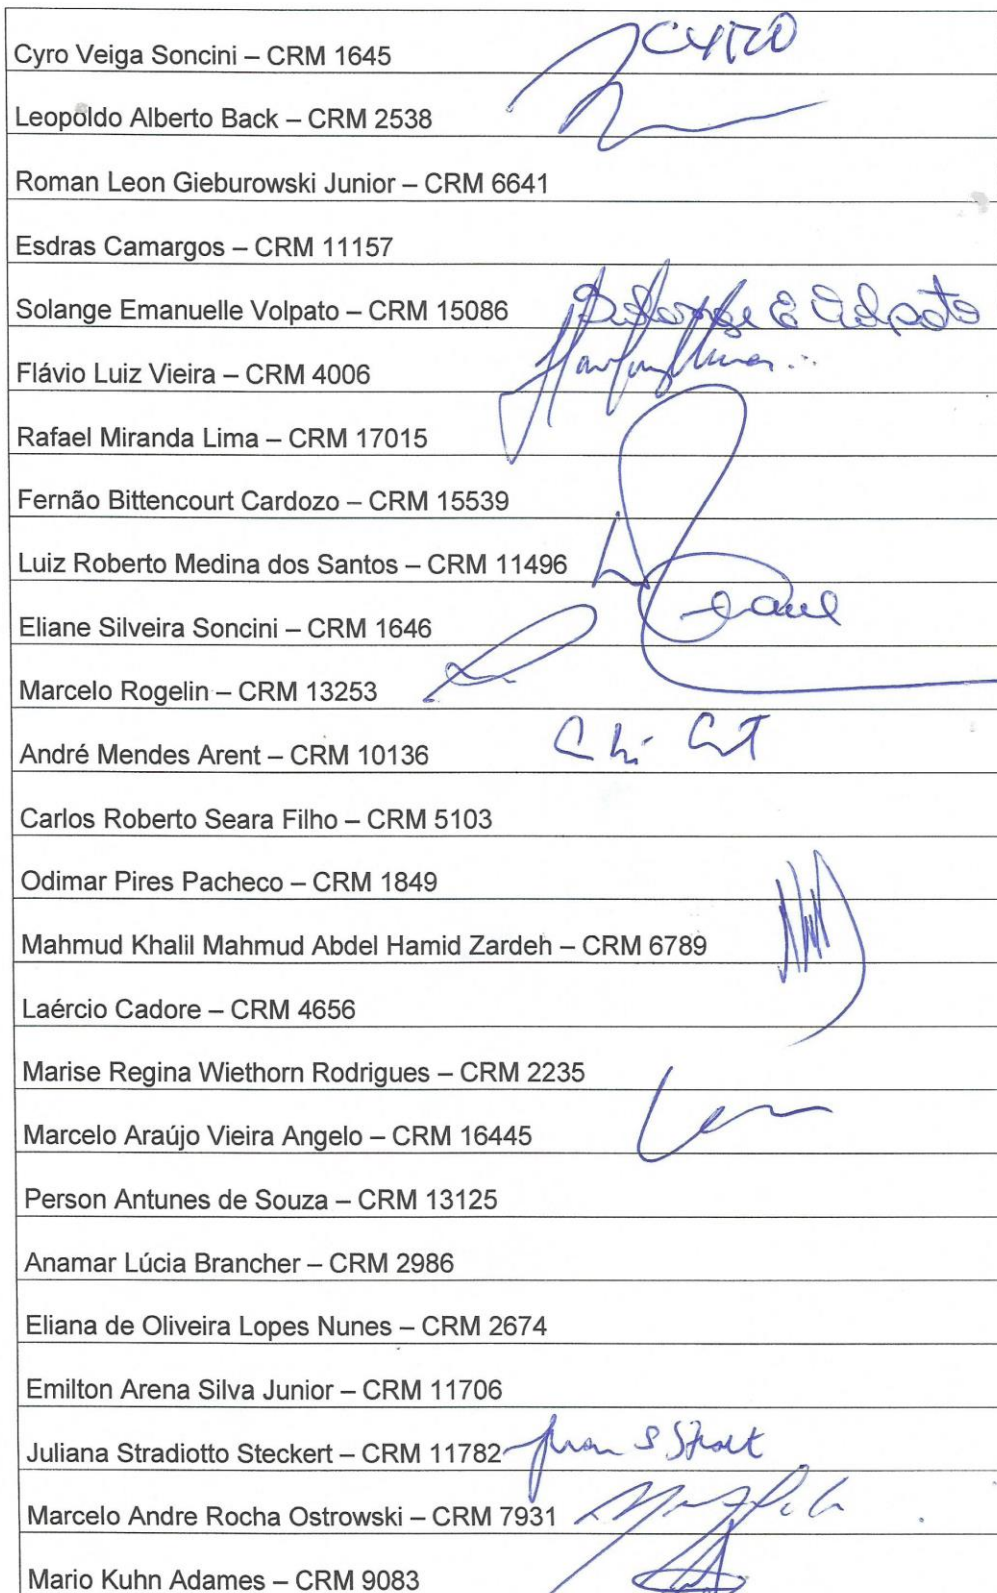 Cyro Veiga Soncini – CRM 1645 CYRO
Leopoldo Alberto Back – CRM 2538
Roman Leon Gieburowski Junior – CRM 6641
Esdras Camargos – CRM 11157
Solange Emanuelle Volpato – CRM 15086 Solange E Volpato
Flávio Luiz Vieira – CRM 4006
Rafael Miranda Lima – CRM 17015
Fernão Bittencourt Cardozo – CRM 15539
Luiz Roberto Medina dos Santos – CRM 11496
Eliane Silveira Soncini – CRM 1646
Marcelo Rogelin – CRM 13253
André Mendes Arent – CRM 10136
Carlos Roberto Seara Filho – CRM 5103
Odimar Pires Pacheco – CRM 1849
Mahmud Khalil Mahmud Abdel Hamid Zardeh – CRM 6789
Laércio Cadore – CRM 4656
Marise Regina Wiethorn Rodrigues – CRM 2235
Marcelo Araújo Vieira Angelo – CRM 16445
Person Antunes de Souza – CRM 13125
Anamar Lúcia Brancher – CRM 2986
Eliana de Oliveira Lopes Nunes – CRM 2674
Emilton Arena Silva Junior – CRM 11706
Juliana Stradiotto Steckert – CRM 11782
Marcelo Andre Rocha Ostrowski – CRM 7931
Mario Kuhn Adames – CRM 9083